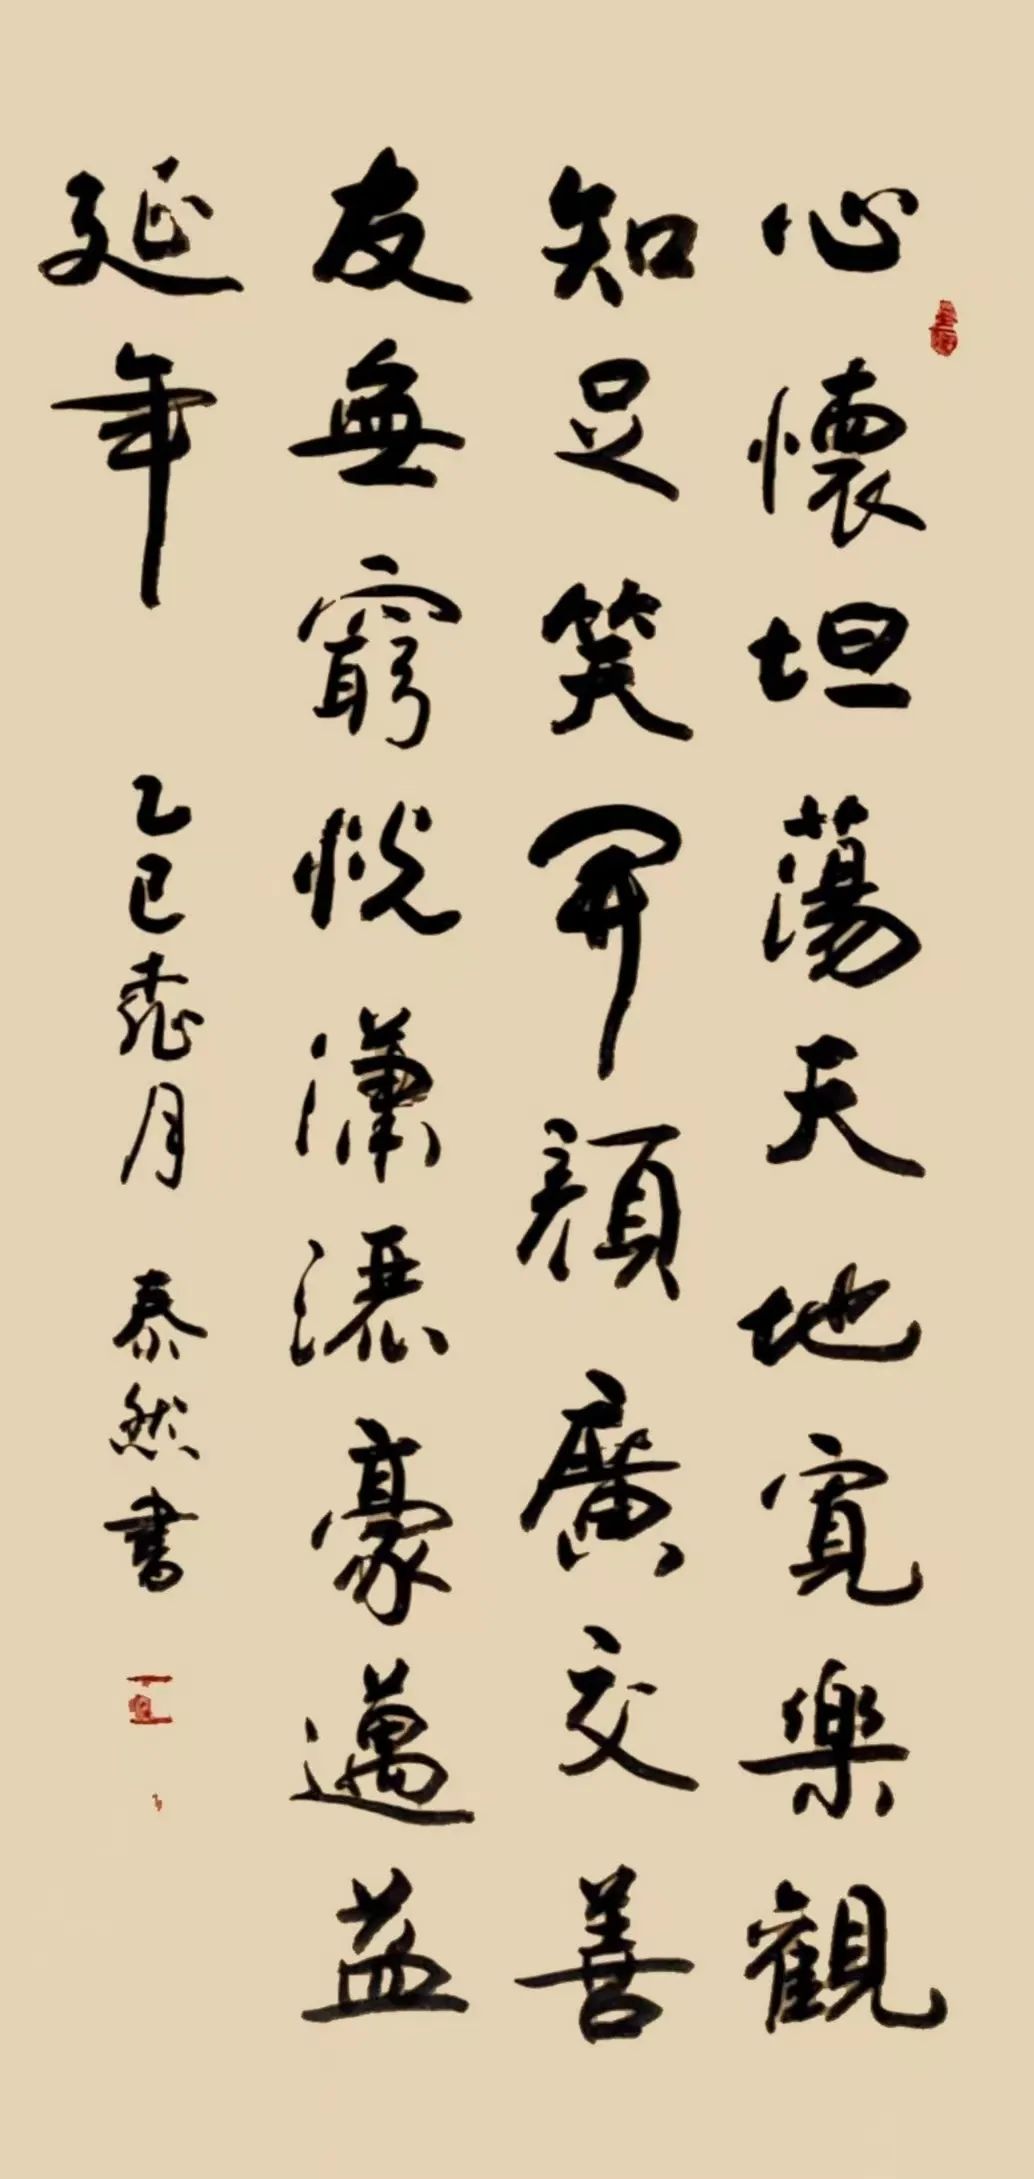 心懷坦蕩天地寬樂觀
知足笑開顏廣交善
友無窮悅瀟灑豪邁益
延年
乙巳
月
泰然書